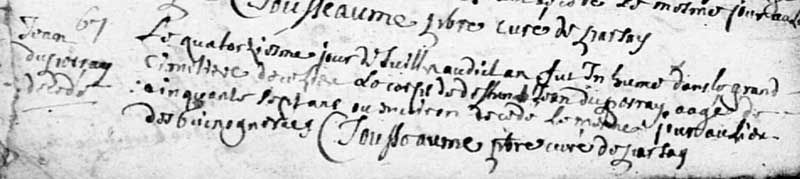 Jousseaume pbre curé de parsay
Jean 67
duperray
decedé
Le quatorziesme jour de Juillet audict an fut Inhumé dans le grand
cimetiere de ce lieu Le corps de deffunct Jean duperray aagé de
cinquante sept ans ou environ decedé le mesme jour au lieu
des
Jousseaume pbre curé de parsay